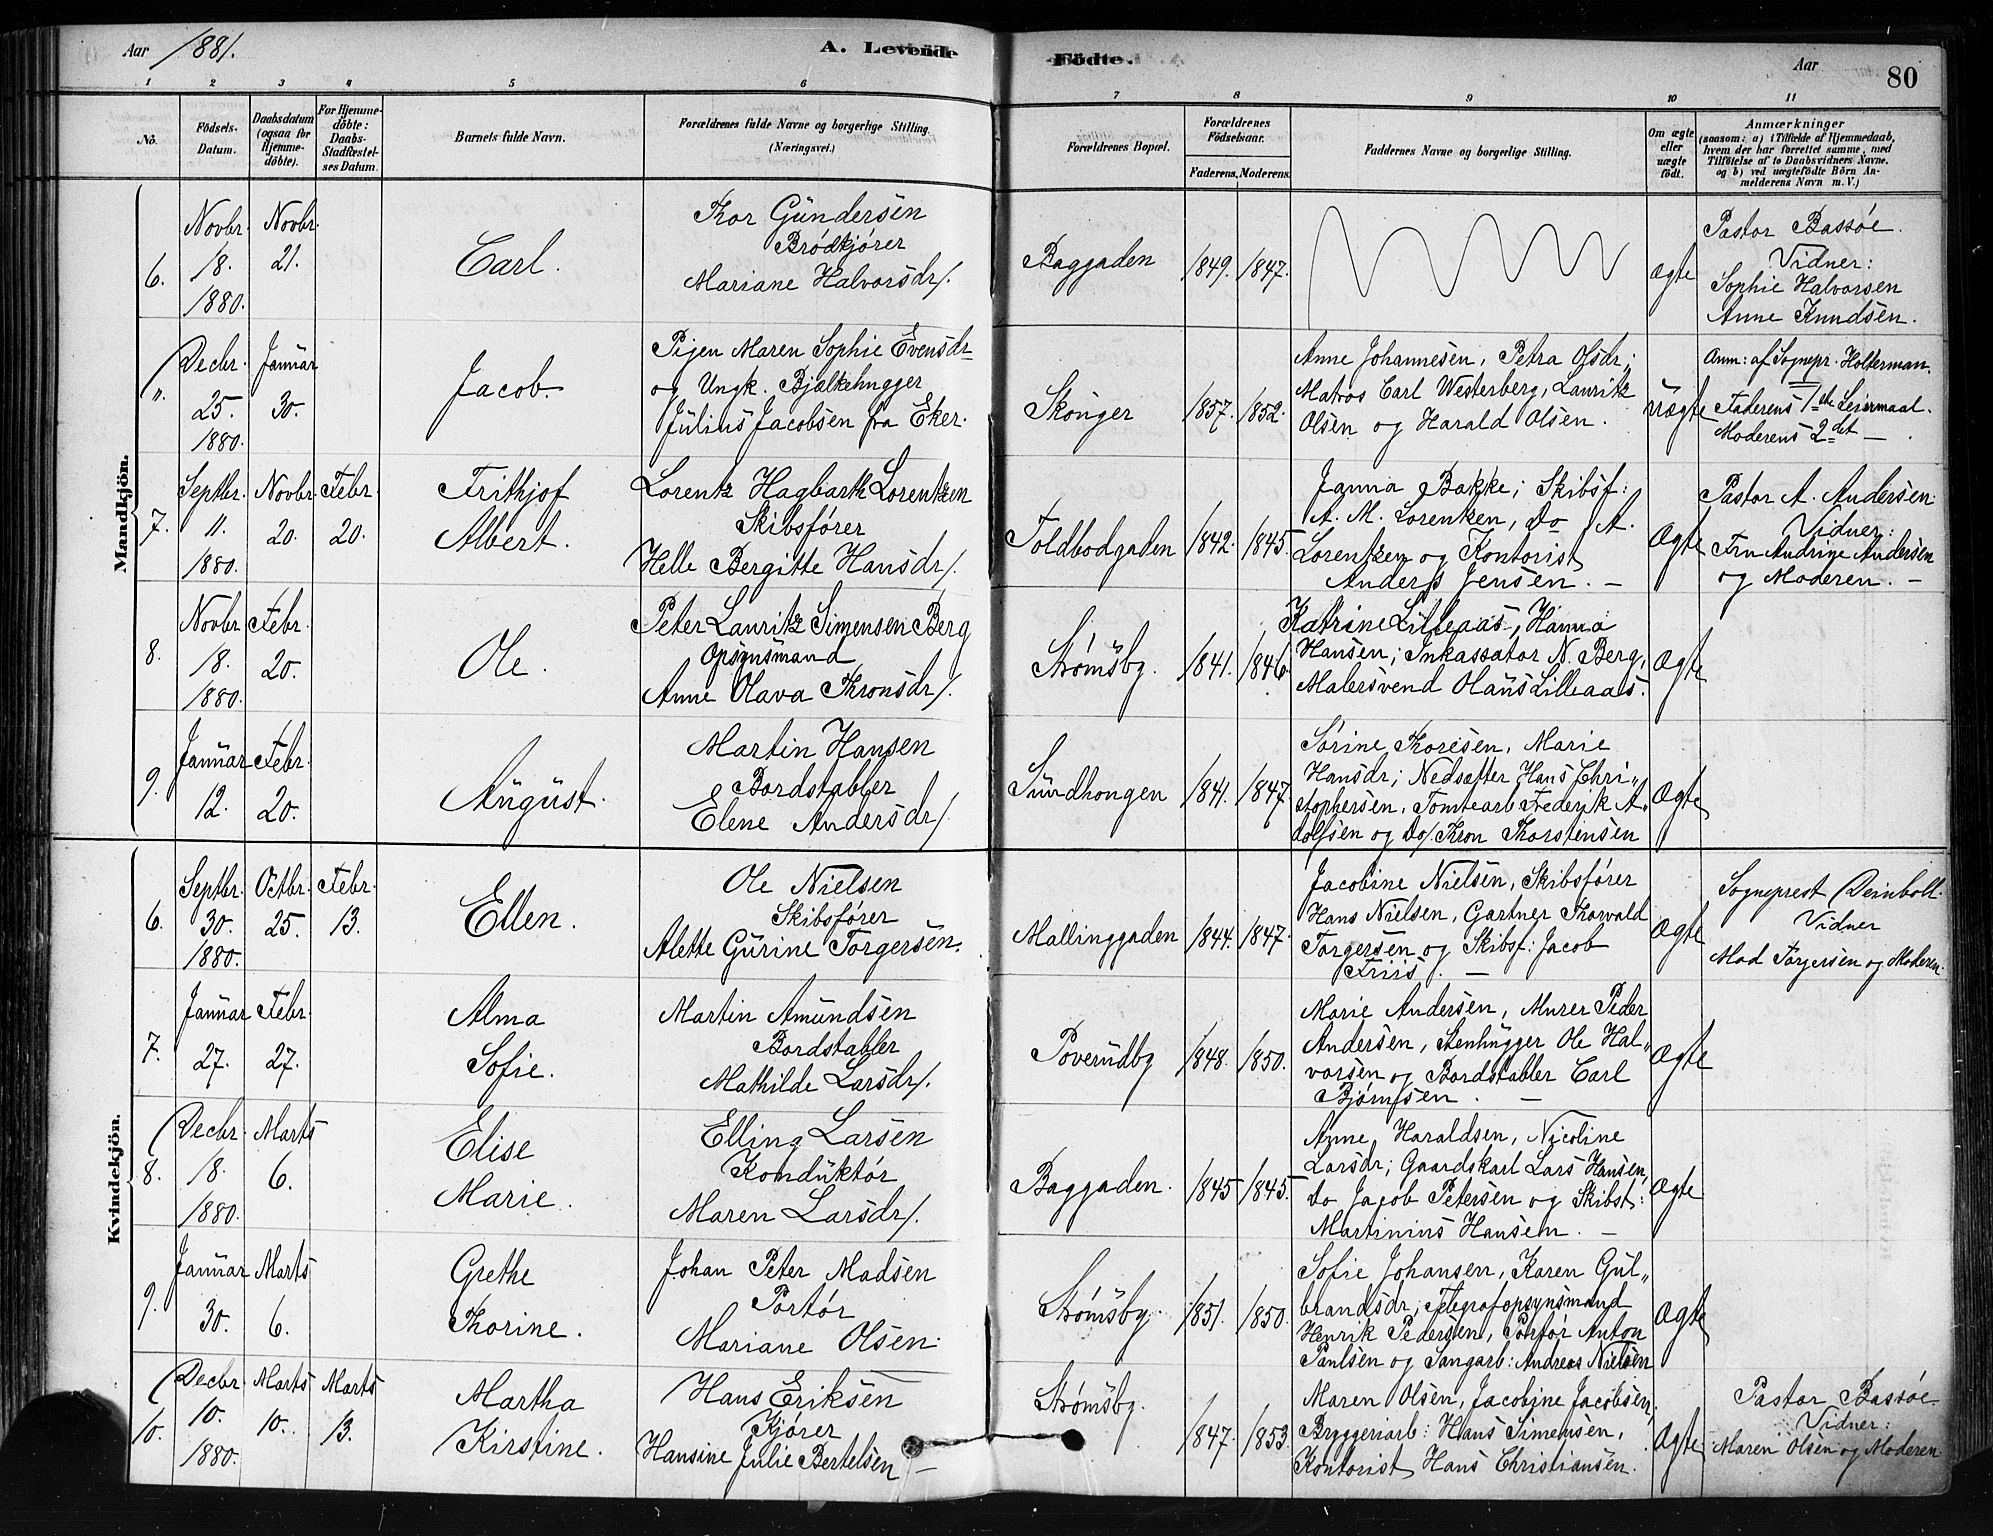 Aar 1881.
A. Levende Födte.
Aar
80
1 2 3 4 5 6 7 8 9 10 11
No.
Födsels-Datum.
Daabsdatum (ogsaa for Hjemme-döbte).
For Hjemme-döbte: Daabs-Stadfæstel-ses Datum.
Barnets fulde Navn.
Forældrenes fulde Navne og borgerlige Stilling.
(Næringsvei.)
Forældrenes Bopæl.
Forældrenes Födselsaar.
Faderens. Moderens.
Faddernes Navne og borgerlige Stilling.
Om ægte eller uægte födt.
Anmærkninger
(saasom: a) i Tilfælde af Hjemmedaab,
hvem der har forrettet samme, med
Tilföielse af to Daabsvidners Navne.
og b) ved uægtefödte Börn An-
melderens Navn m. V.)
Mandkjön.
6.
Novbr. 18. 1880.
Novbr. 21.
Carl.
Thor Gundersen
Brödkjører
Mariane Halvorsdr/.
Baggaden
1849. 1847.
ægte
Pastor Bassøe.
Vidner:
Sophie Halvorsen
Anne Knudsen.
".
Decbr. 25. 1880.
Januar 30.
Jacob.
Pigen Maren Sophie Evensdr
og Ungk. Bjælkehugger
Julius Jacobsen fra Eker.
Skonger
1857. 1852.
Anne Johannesen, Petra Olsdr;
Matros Carl Westerberg, Lauritz
Olsen og Harald Olsen.
uægte
Anm: af Sognepr. Holterman.
Faderens 1ste Leiermaal.
Moderens 2det —.
7.
Septbr. 11. 1880.
Novbr. 20.
Febr. 20.
Frithjof
Albert.
Lorentz Hagbarth Lorentzen
Skibsfører
Helle Bergitte Hansdr/.
Toldbodgaden
1842. 1845.
Janna Bakke; Skibsf:
A. M. Lorentzen, Do A.
Lorentzen og Kontorist
Anders Jensen. —
Ægte
Pastor A. Andersen.
Vidner:
Fru Andrine Andersen
og Moderen. —
8.
Novbr 18. 1880.
Febr. 20.
Ole.
Peter Lauritz Simensen Berg
Opsynsmand
Anne Olava Thronsdr/.
Strømsby.
1841. 1846.
Katrine Lilleaas, Hanna
Hansen; Inkassator N. Berg,
Malersvend Olaus Lilleaas.
Ægte
9.
Januar 12.
Febr. 20.
August.
Martin Hansen
Bordstabler
Elene Andersdr/.
Sundhougen
1841. 1847.
Sørine Thoresen, Marie
Hansdr; Nedsætter Hans Chri„
stophersen, Tomtearb Frederik A„
dolfsen og Do/. Thron Thorstensen
Ægte
Kvindekjön.
6.
Septbr. 30. 1880.
Octbr. 25.
Febr. 13.
Ellen.
Ole Nielsen
Skibsfører
Alette Gurine Torgersen.
Mallinggaden
1844. 1847.
Jacobine Nielsen, Skibsfører
Hans Nielsen, Gartner Thorvald
Torgersen og Skibsf: Jacob
Friis. —
Ægte
Sogneprest Deinboll.
Vidner
Mad Torgersen og Moderen.
7.
Januar 27.
Febr. 27.
Alma
Sofie.
Martin Amundsen
Bordstabler
Mathilde Larsdr/.
Poverudby
1848. 1850.
Marie Andersen, Murer Peder
Andersen, Stenhugger Ole Hal„
vorsen og Bordstabler Carl
Bjørnsen. —
Ægte
8.
Decbr. 18. 1880.
Marts 6.
Elise
Marie.
Elling Larsen
Konduktør
Maren Larsdr/.
Baggaden.
1845 1845.
Anne Haraldsen, Nicoline
Larsdr; Gaardskarl Lars Hansen,
Do Jacob Petersen og Skibst:
Martinius Hansen. —
Ægte
9.
Januar 30.
Marts 6.
Grethe
Thorine.
Johan Peter Madsen
Portør
Mariane Olsen.
Strømsby.
1851. 1850.
Sofie Johansen, Karen Gul„
brandsdr; Telegrafopsynsmand
Henrik Pedersen, Portør Anton
Paulsen og Sangarb: Andreas Nielsen
Ægte
10.
Decbr. 10. 1880.
Marts 10.
Marts 13.
Martha
Kirstine.
Hans Eriksen
Kjører
Hansine Julie Bertelsen —
Strømsby.
1847. 1853.
Maren Olsen, Jacobine Jacobsen,
Bryggeriarb: Hans Simensen,
Kontorist Hans Christiansen.
Ægte
Pastor Bassøe.
Vidner:
Maren Olsen og Moderen